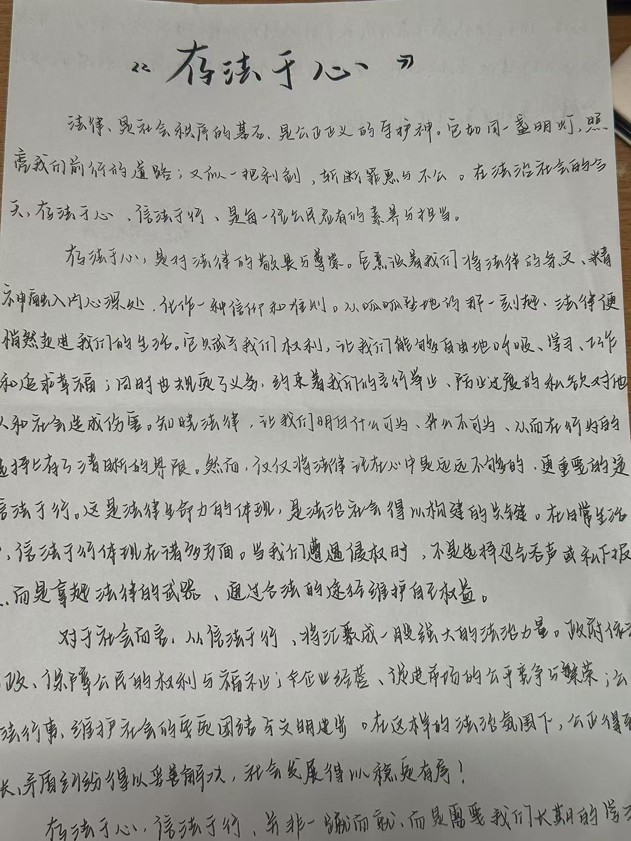 《存法于心》
法律、是社会秩序的基石、是公正正义的守护神。它如同一盏明灯,照
亮我们前行的道路;又似一把利剑,斩断罪恶与不公。在法治社会的今
天,存法于心、信法于行、是每一位公民应有的素养与担当。
存法于心,是对法律的敬畏与尊崇。它意味着我们将法律的条文、精
神融入内心深处,化作一种信仰和准则。从呱呱坠地的那一刻起、法律便
悄然走进我们的生活。它赋予我们权利,让我们能够自由地呼吸、学习、工作
和追求幸福;同时也规定了义务,约束着我们的言行举止、防止过度的私欲对他
人和社会造成伤害。知晓法律,让我们明白什么可为、什么不可为、从而在行为的
选择上有了清晰的界限。然而,仅仅将法律记在心中是远远不够的,更重要的是
信法于行。这是法律生命力的体现,是法治社会得以构建的关键。在日常生活
,信法于行体现在诸多方面。当我们遭遇侵权时,不是选择忍气吞声或私下报
,而是拿起法律的武器、通过合法的途径维护自己权益。
对于社会而言,以信法于行、将汇聚成一股强大的法治力量。政府依法
政、保障公民的权利与福祉;企业经营、促进市场的公平竞争与繁荣;公
法行事、维护社会的和团结与文明进步。在这样的法治氛围下,公正得到
长,矛盾纠纷得以妥善解决,社会发展得以稳定有序!
存法于心,信法于行、并非一蹴而就,而是需要我们长期的学习